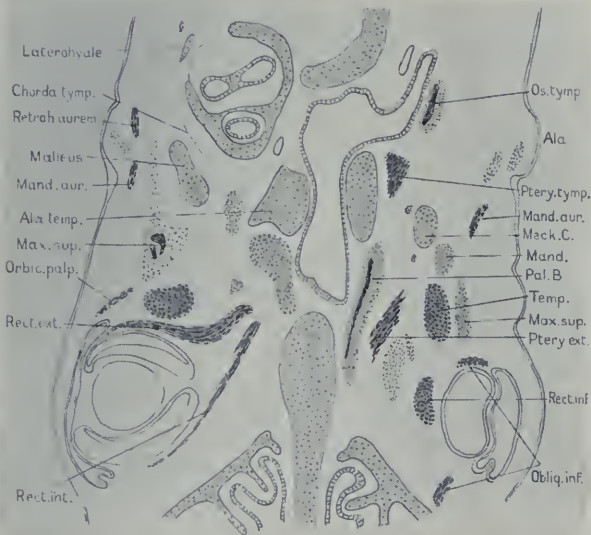 Laterohyale
Chorda tymp.
Retrah aurem
Malleus
Mand. aur.
Ala temp.
Max. sup.
Orbic. palp.
Rect. ext.
Rect. int.
Os. tymp
Ala
Ptery. tymp.
Mand. aur.
Meck. C.
Mand.
Pal. B
Temp.
Max. sup.
Ptery ext.
Rect. inf
Obliq. inf.